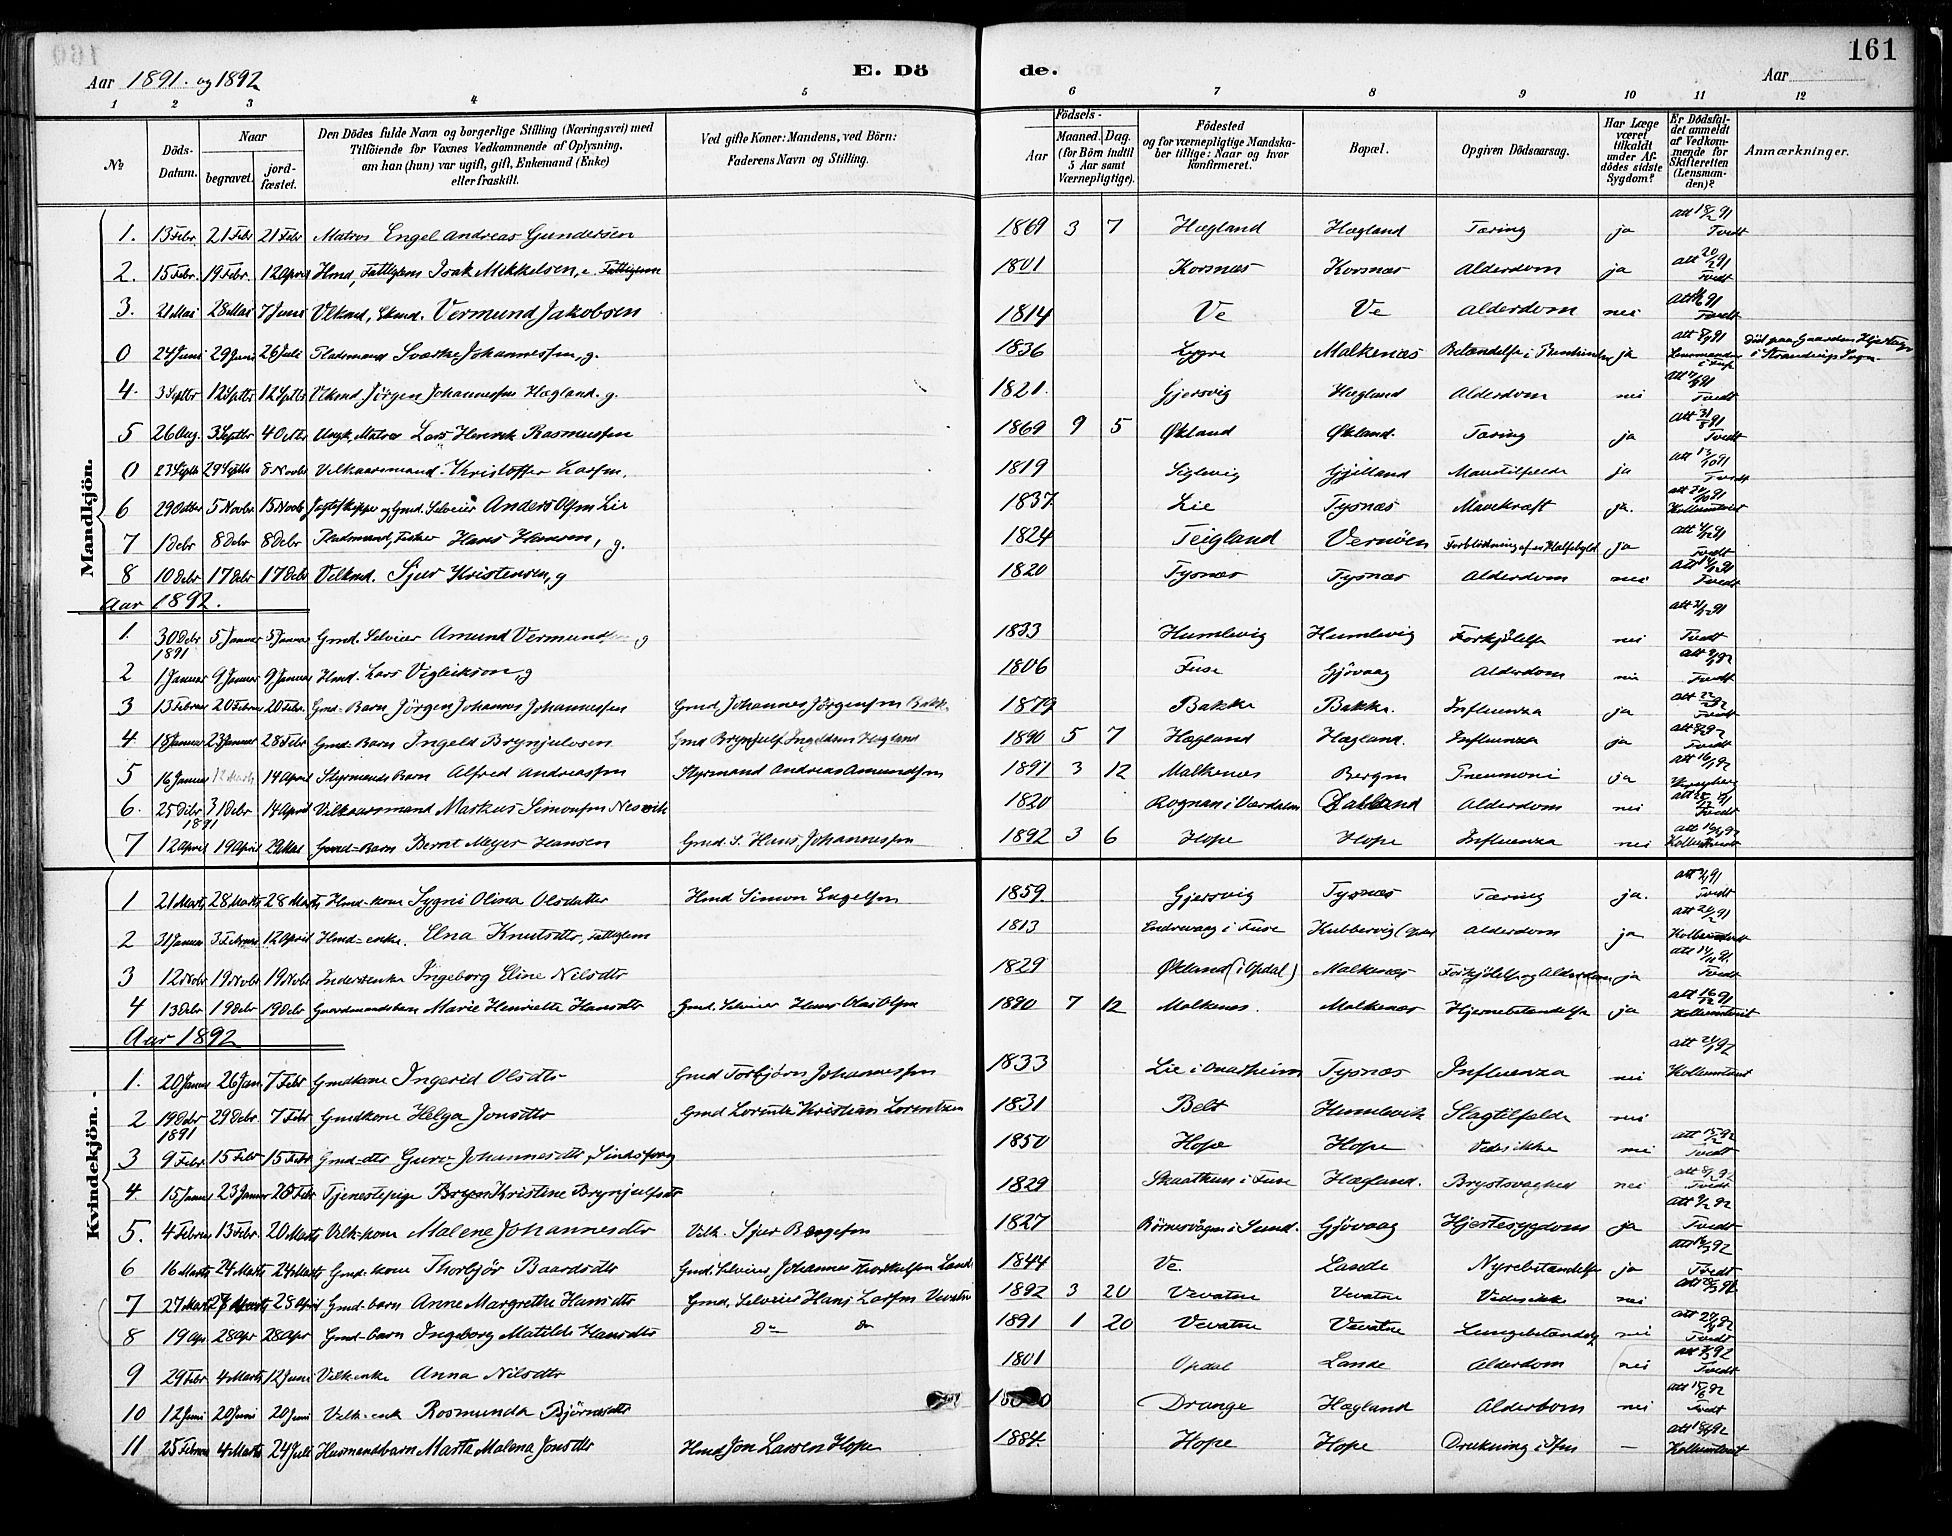 161
Aar 1891. og 1892
E. Dö de.
Aar
1 2 3 4 5 6 7 8 9 10 11 12
No
Döds-Datum.
Naar
begravet.
jordfæstet.
Den Dödes fulde Navn og borgerlige Stilling (Næringsvei) med Tilföiende for Voxnes Vedkommende af Oplysning, om han (hun) var ugift, gift, Enkemand (Enke) eller fraskilt.
Ved gifte Koner: Mandens, ved Börn: Faderens Navn og Stilling.
Födsels-
Aar
Maaned. Dag.
(for Börn indtil 5 Aar samt Værnepligtige).
Födested og for værnepligtige Mandskaber tillige: Naar og hvor konfirmeret.
Bopæl.
Opgiven Dödsaarsag.
Har Læge været tilkaldt under Afdödes sidste Sygdom?
Er Dödsfaldet anmeldt af Vedkommende for Skifteretten (Lensmanden)?
Anmærkninger.
Mandkjön.
1. 13 Febr. 21 Febr 21 Febr Matros Engel Andreas Gundersen 1869 3 7 Hægland Hægland Tæring ja att 18/2 91 Tvedt
2. 15 Febr. 19 Febr. 12 April Hmd, Fattiglem Isak Mikkelsen, e. Fattiglem 1801 Korsnæs Korsnæs Alderdom ja att 20/2 91 Tvedt
3. 21 Mai 28 Mai 7 Juni Vlkmd, Ekmd. Vermund Jakobsen 1814 Ve Ve Alderdom nei Tvedt
0 24 Juni 29 Juni 26 Juli Pladsmand Sværke Johannessen, g. 1836 Lygre Malkenæs Betændelse i ja Lensmanden i Fuse död paa Gaarden i Strandvigs Sogn
4. 3 Septbr 12 Septbr 12 Septbr Vlkmd Jörgen Johannessen Hægland. g. 1821. Gjersvig Hægland Alderdom nei Tvedt
5 26 Aug. 3 Septbr 4 Octbr Ungk. Matros Lars Henrik Rasmussen 1869 9 5 Økland Økland. Tæring ja att 31/8 91 Tvedt
0 23 Septb 29 Septb 8 Novbr Velkaarsmand Kristoffer Larsen. 1819 Siglevig Gjilland ja Tvedt
6 29 Octbr 5 Novbr 15 Novb Jagtskipper og Gmd. Selveier Anders Olsen Lie 1837. Lie Tysnæs Mavekræft ja. Kolluntveit
7 1 Debr 8 Debr 8 Debr Pladsmand, Fisker Hans Hansen, g. 1824 Teigland Vernöen Forblödning af en Halsebyld ja Tvedt
8 10 Debr 17 Debr 17 Debr Velkmd. Sjur Kristensen, g 1820 Tysnæs Tysnæs Alderdom nei Tvedt
Aar 1892.
1. 30 Debr 1891 5 Januar 5 Januar Gmd. Selveier Amund Vermundsen g 1833 Humlevig Humlevig Forkjölelse nei att 31/12 91 Tvedt
2 1 Januar 9 Januar 9 Januar Hmd. Lars Vigleikson, g 1806 Fuse Gjövaag Alderdom nei Tvedt
3 13 Februar 20 Februar 20 Febr. Gmd-Barn Jörgen Johannes Johannessen Gmd Johannes Jörgensen Bakk. 1879 Bakka Bakka. Influenza ja Tvedt
4 18 Januar 23 Januar 28 Febr Gmd-Barn Ingeld Brynjulvsen Gmd Brynjulf Ingeldsen Hægland 1890 5 7 Hægland Hægland. Influenza ja Tvedt
5 16 Januar 14 April Styrmands Barn Alfred Andreassen Styrmand Andreas Amundsen 1891 3 12 Malkenæs Bergen Pneumoni ja
6. 25 Debr 1891 31 Debr 14 April Velkaarsmand Markus Simonsen Nesvik 1820 Rognan i Værdalen Dalland Alderdom nei Tvedt
7 12 April 19 April 29 Mai Gmd-Barn Bernt Meyer Hansen Gmd. S. Hans Johannessen 1892 3 6 Hope Hope Influenza nei
Kvindekjön.
1 21 Marts 28 Marts 28 Marts Hmd-kone Sygni Olina Olsdatter Hmd Simon Engelsen 1859. Gjersvig Tysnæs Tæring ja. Tvedt
2 31 Januar 3 Februar 12 April Hmd-enke. Elna Knutsdtr, Fattiglem 1813 Endrevaag i Fuse Hubbervig Alderdom ja
3 12 Novbr 19 Novbr 19 Novbr Inderstenke Ingeborg Eline Nilsdtr 1829 Økland (i Opdal) Malkenæs Forkjölelse og Alderdom ja Tvedt
4 13 Debr 19 Debr 19 Debr Gaardmandsbarn Marie Henriette Hansdtr Gmd. Selveier Hans Olai Olsen 1890 7 12 Malkenes. Malkenæs Hjernebetændelse ja att 16/12 91 Kolluntveit
Aar 1892
1. 20 Januar 26 Jan 7 Febr Gmdkone Ingerid Olsdtr Gmd Torbjörn Johannessen 1833 Lie i Onarheim Tysnæs Influenza nei Kolluntveit
2 19 Debr 1891 29 Debr. 7 Febr Gmdkone Helga Jonsdtr Gmd Lorents Kristian Lorentsen 1831 Belt Humlevik Slagtilfælde nei
3 9 Febr. 15 Febr 15 Febr Gmd-dtr Guro Johannesdtr, Sindssvag 1850 Hope Hope Vides ikke nei att 15/2 92 Tvedt
4 15 Januar 23 Januar 28 Febr Tjenestepige Bryn Kristine Brynjulfsdtr 1829 Skaathun i Fuse Hægland. Brystsvaghed nei Tvedt
5. 4 Februar 13 Febr. 20 Marts Velk-kone Malene Johannesdtr Velk. Sjur Børgesen 1827 Börnesvågen i Sund. Gjövaag Hjertesygdom ja Tvedt
6 16 Marts 24 Marts 24 Marts Gmd-kone Thorbjör Baardsdtr Gmd. Selveier Johannes Torkelsen Lande 1844 Ve. Lande Nyrebetændelse ja Tvedt
7 27 Marts 28 April Gmd-barn Anne Margrethe Hansdtr Gmd, Selveier Hans Larsen Vevatne 1892 3 20 Vevatne Vevatne Vides ikke nei
8 19 Apr 28 Apr 28 Apr Gmd-barn Ingeborg Matilde Hansdtr Do Do 1891 1 20 Vevatne Vevatne Lungebetændelse nei Tvedt
9 29 Febr 4 Marts 12 Juni Velk-enke Anna Nilsdtr 1801 Opdal Lande Alderdom nei Tvedt
10 12 Juni 20 Juni 20 Juni Velk-enk Rosmunda Bjørnsdtr Drange Hægland Alderdom nei att 15/6 92 Tvedt
11 25 Februar 4 Marts 24 Juli Husmandbarn Marta Malena Jonsdtr Hmd Jon Larsen Hope 1884. Hope Hope Drukning i — Kolluntveit